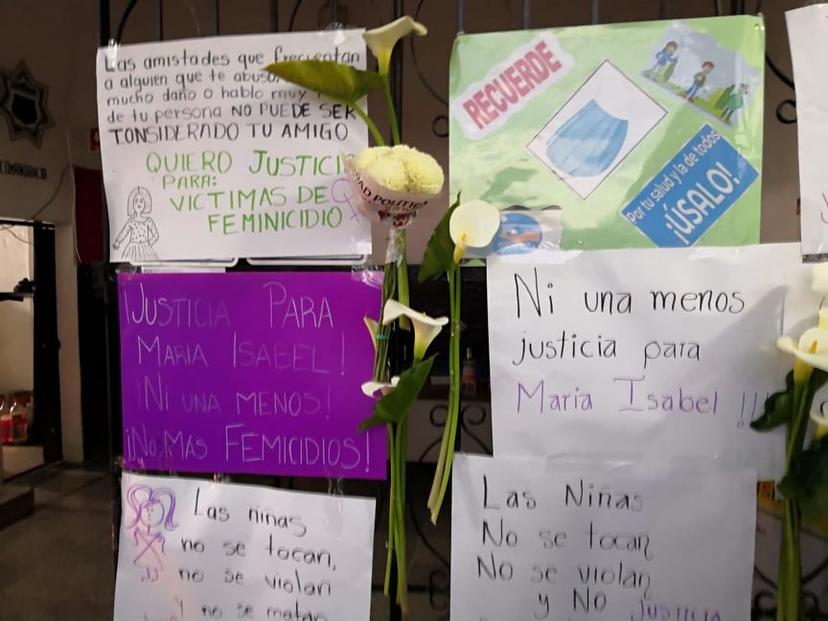 Las amistades que frecuentan
a alguien que te abuso,
mucho daño o hablo muy
de tu persona NO PUEDE SER
CONSIDERADO TU AMIGO
QUIERO JUSTICI
PARA:
VICTIMAS DE
FEMINICIDIO
RECUERDE
Por tu salud y la de todos
¡ÚSALO!
COMANDANCIA
¡JUSTICIA PARA
MARIA ISABEL!
¡NI UNA MENOS!
¡NO MÁS FEMICIDIOS!
Ni una menos
justicia para
Maria Isabel !!!
Las niñas
no se tocan,
no se violan
y no se matan
Las Niñas
No se tocan
No se violan
y No JUSTICIA